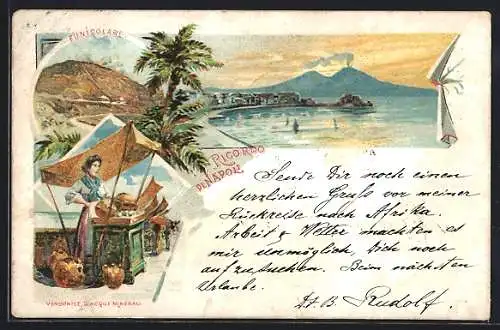 FUNICOLARE
RICORDO
DI NAPOLI
Sende Dir noch einen
herzlichen Gruß vor meiner
Rückreise nach Afrika.
Arbeit & Wetter machten es
mir unmöglich, Dich noch
aufzusuchen. Beim nächsten
Urlaube.
Dt. B Rudolf.
VENDITRICE D'ACQUE MINERALI